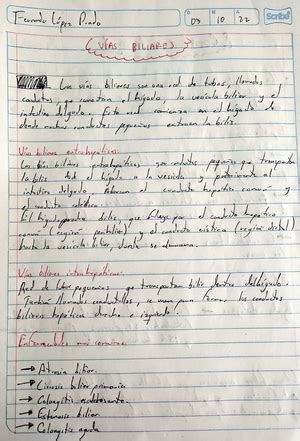 Fernando López Prado
D M A
03 10 22 Scribe
VÍAS BILIARES
Las vías biliares son una red de tubos, llamados
conductos que conectan el hígado, la vesícula biliar y el
intestino delgado. Esta red comienza en el hígado de
donde muchos conductos pequeños la bilis.
Vías biliares extrahepáticas:
Las vías biliares extrahepáticas son conductos pequeños que transportan
la bilis del hígado a la vesícula y posteriormente al
intestino delgado. el conducto hepático común y
el conducto colédoco.
El hígado produce bilis, que fluye por el conducto hepático
común (región ) y el conducto cístico (región distal)
hasta la vesícula biliar, donde se almacena.
Vías biliares intrahepáticas:
Red de tubos pequeños que transportan bilis dentro del hígado.
También llamados conductillos, se unen para formar los conductos
biliares hepáticos derecho e izquierdo.
Enfermedades más comunes:
→ Atresia biliar.
→ Cirrosis biliar primaria
→ Colangitis esclerosante.
→ Estenosis biliar
→ aguda